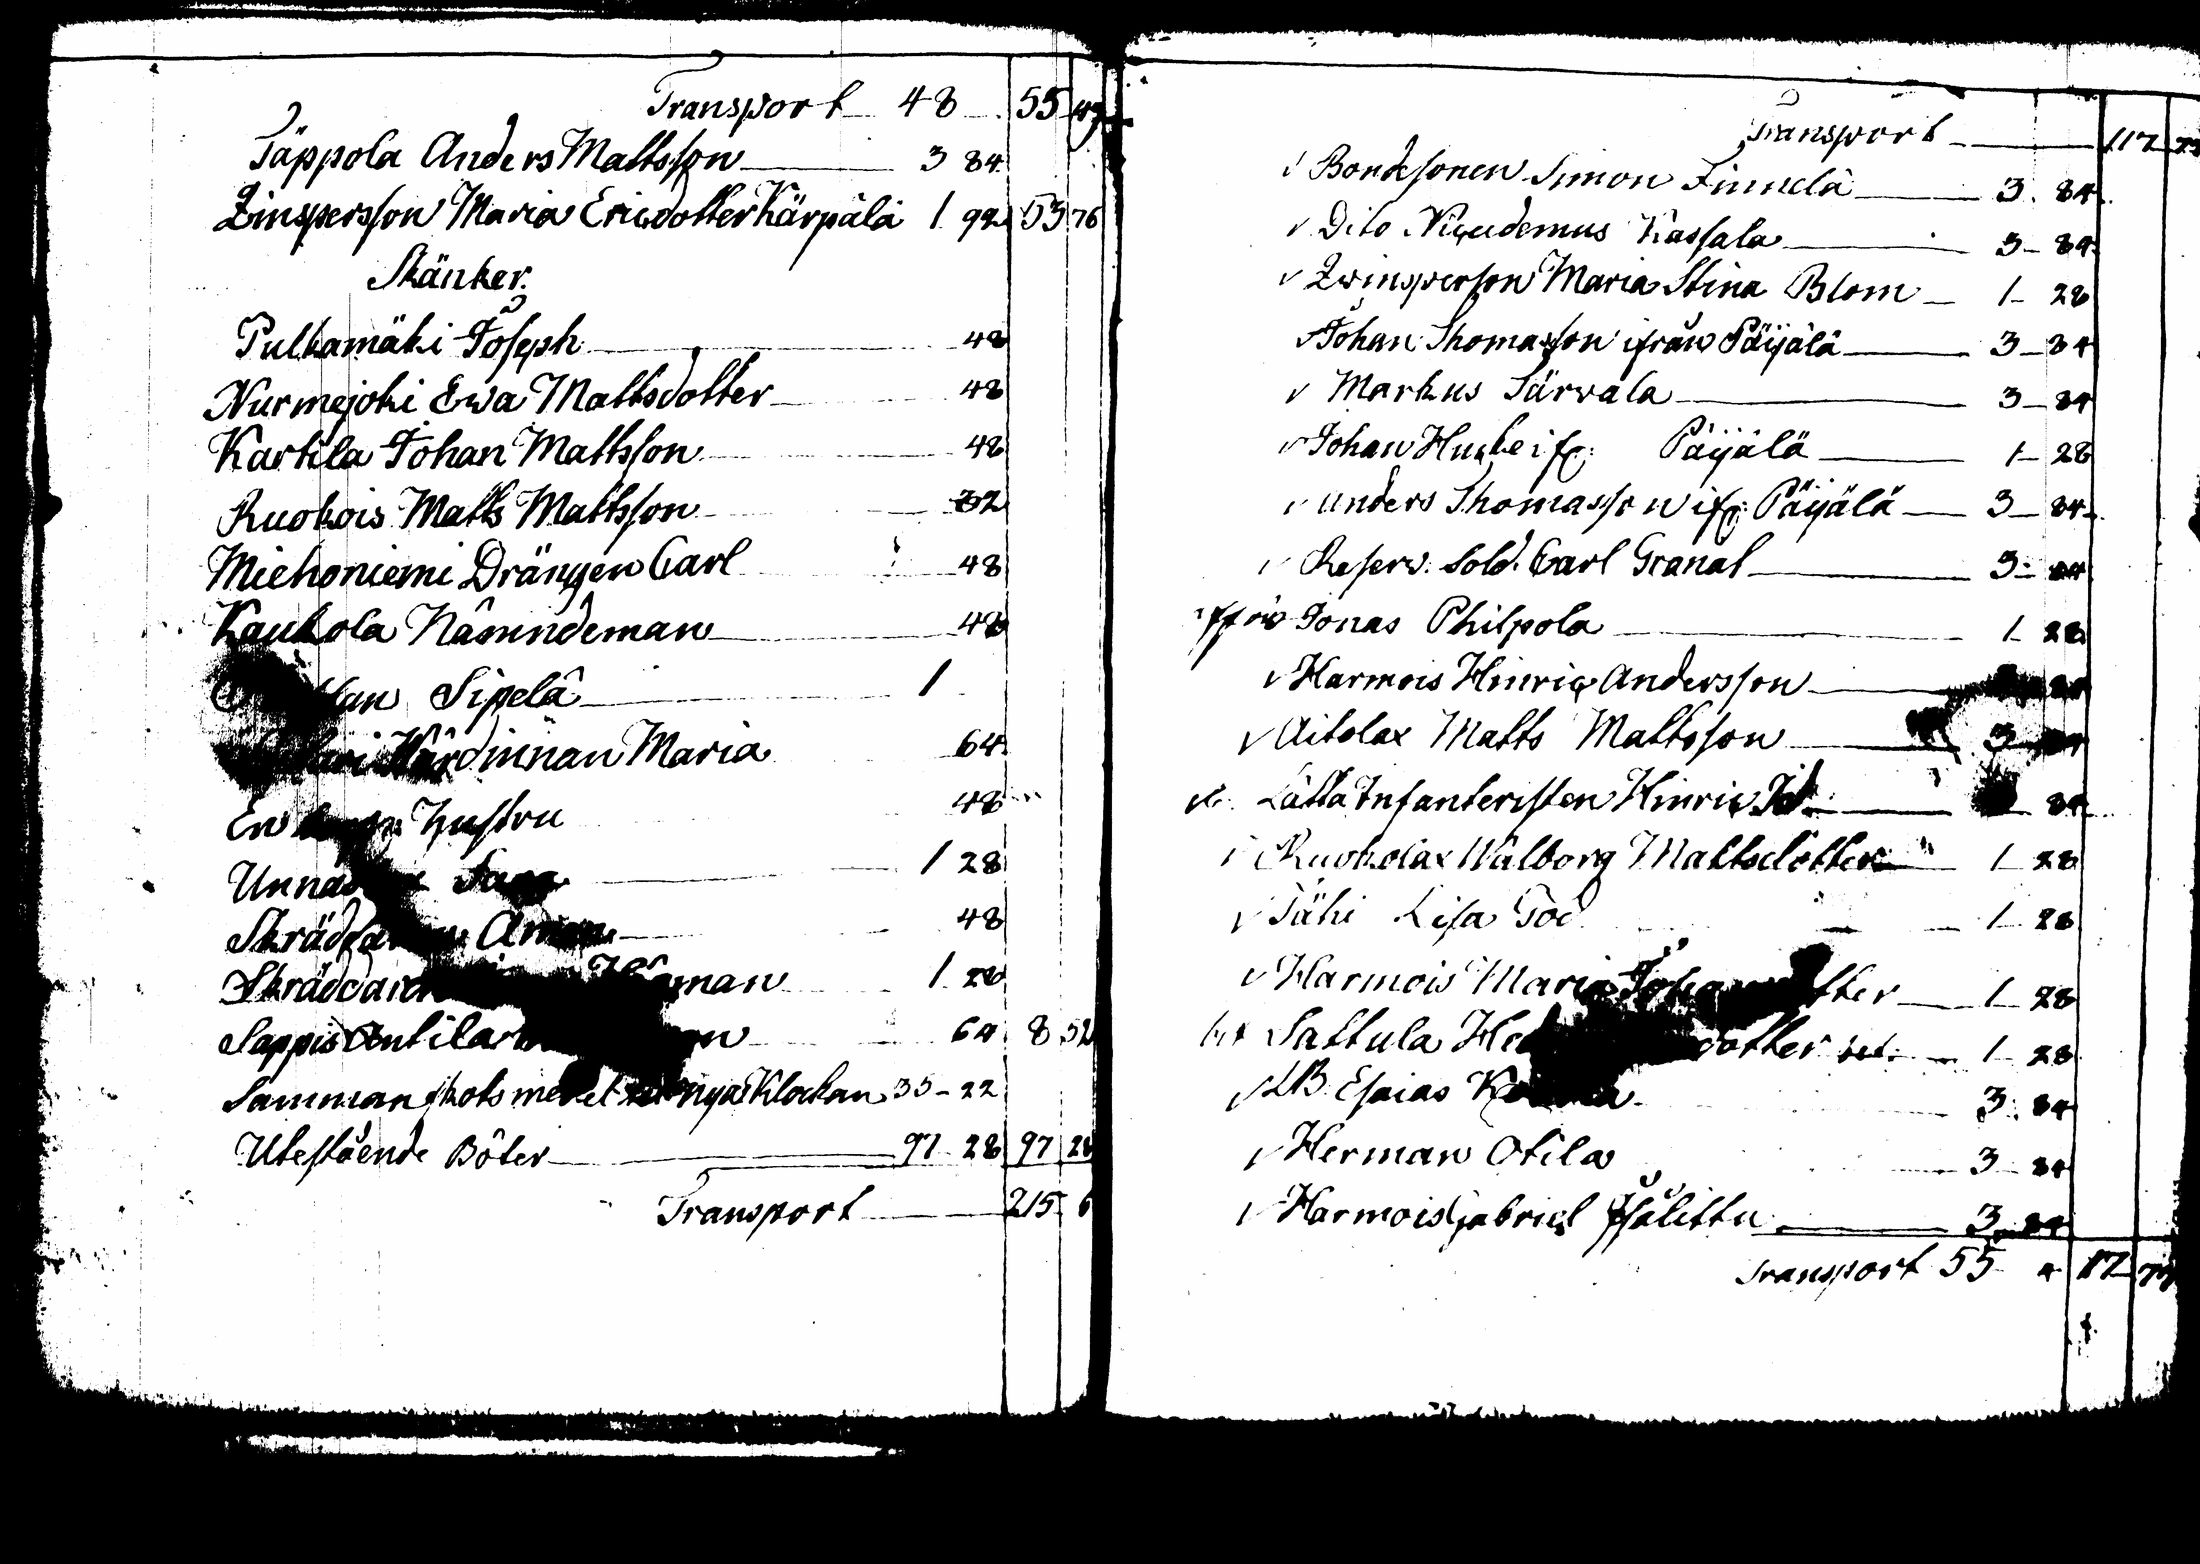 Transport 48 55 47
Täppola Anders Mattsson 3 84
Qvinspersson Maria Ericsdotter Kärpälä 1 92 53 76
Skänker.
Pulkamäki Joseph 48
Nurmejoki Ewa Mattsdotter 48
Kartila Johan Mattsson 48
Ruohois Matts Mattsson 32
Miehoniemi Drängen Carl 48
Kaukola Nämndeman 48
Sipelä 1
Wärdinnan Maria 64
En Hustru 48
Sara 1 28
48
1 28
Sappis Antila 64 8 52
Sammanskots medel nya Klockan 35 - 22
Utestående Böter 97 28 97 28
Transport 215 6
Transport 117 73
Bondesonen Simon Finnelä 3. 84
Dito Nicudemus Kassala 3 - 84
Qwinsperson Maria Stina Blom 1 - 28
Johan Thomasson ifrån Päijälä 3 - 84
Markus Särwala 3 - 84
Johan if: Päijälä 1 - 28
Anders Thomasson if: Päijälä 3 - 84
Reserv. Sold. Carl Granat 3 - 84
Jonas Philpola 1 - 28
Harmois Hinric Andersson 84
Aitolax Matts Mattsson 3 84
Lätta Infanteristen Hinric 84
Ruokolax Walborg Mattsdotter 1 - 28
Tähi Lisa 1 - 28
Harmois Maria 1 - 28
Sattula 1 - 28
LB. Esaias 3. 84
Herman Otila 3 - 84
Harmois Gabriel 3 - 84
Transport 55 4 17 77